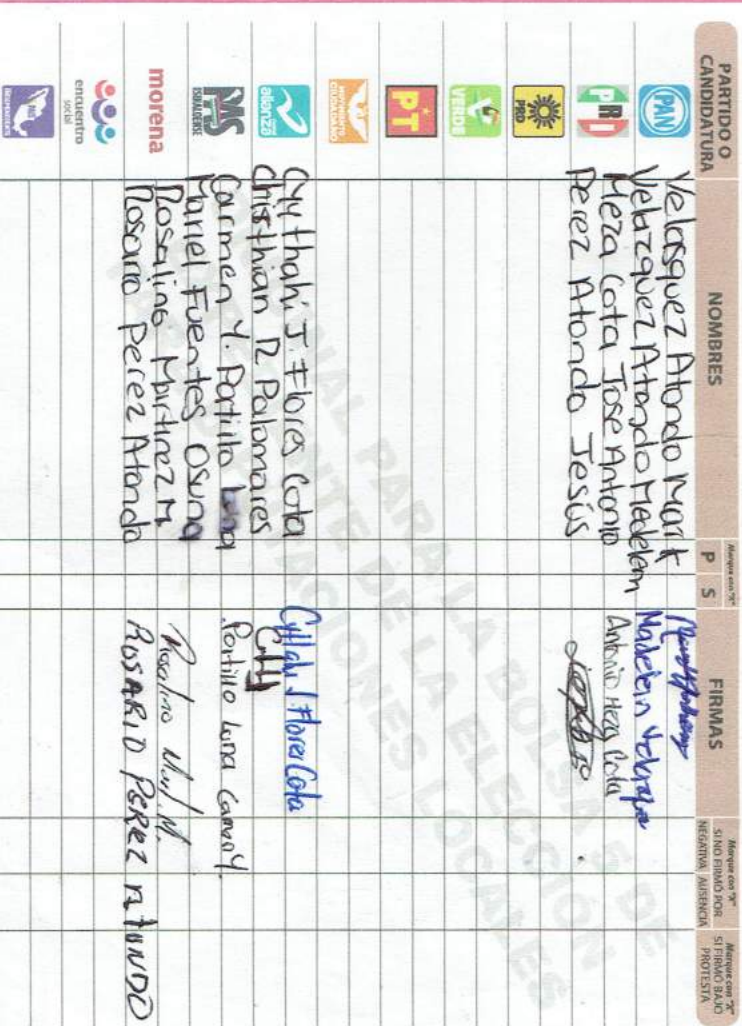 PARTIDO O CANDIDATURA NOMBRES Marque con "X" P S FIRMAS Marque con "X" SI NO FIRMÓ POR NEGATIVA AUSENCIA Marque con "X" SI FIRMÓ BAJO PROTESTA
PAN Velasquez Atondo Mark
Velazquez Atondo Madelein Madelein Velazque
PRI Meza Cota Jose Antonio Antonio Meza Cota
Perez Atondo Jesús
PRD
VERDE
PT
MOVIMIENTO CIUDADANO
alianza Cyithahi J. Flores Cota Cyitahi J. Flores Cota
Chisthian R Palomares
PMS Carmen Y. Portillo Luna Portillo Luna Carmen Y.
Mariel Fuentes Osuna
morena Rosalino Martinez M Rosalino Mar M.
Rosario Perez Atondo ROSARIO PEREZ ATONDO
encuentro social
ORIGINAL PARA LA BOLSA 5 DE
EXPEDIENTE DE LA ELECCIÓN
LOCALES